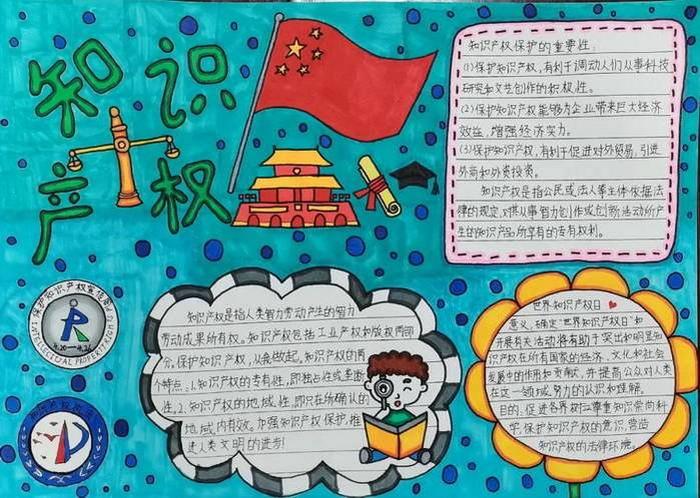 知识
产权
知识产权保护的重要性:
(1)保护知识产权,有利于调动人们从事科技
研究和文艺创作的积极性。
(2)保护知识产权能够为企业带来巨大经济
效益,增强经济实力。
(3)保护知识产权,有利于促进对外贸易,引进
外商和外资投资。
知识产权是指公民或法人等主体依据法
律的规定,对其从事智力创作或创新活动所产
生的知识产品所享有的专有权利。
保护知识产权宣传周
INTELLECTUAL PROPERTY RIGHT
4.20—4.26
知识产权是指人类智力劳动产生的智力
劳动成果所有权。知识产权包括工业产权和版权两部
分,保护知识产权,从我做起。知识产权的两
个特点:1.知识产权的专有性,即独占性或垄断
性。2.知识产权的地域性,即只在所确认的
地域内有效。加强知识产权保护,推
进人类文明的进步!
世界知识产权日
意义:确定“世界知识产权日”和
开展有关活动将有助于突出和明显知
识产权在所有国家的经济、文化和社会
发展中的作用和贡献,并提高公众对人类
在这一领域努力的认识和理解。
目的:促进各界树立尊重知识崇尚科
学,保护知识产权的意识,营造
知识产权的法律环境。